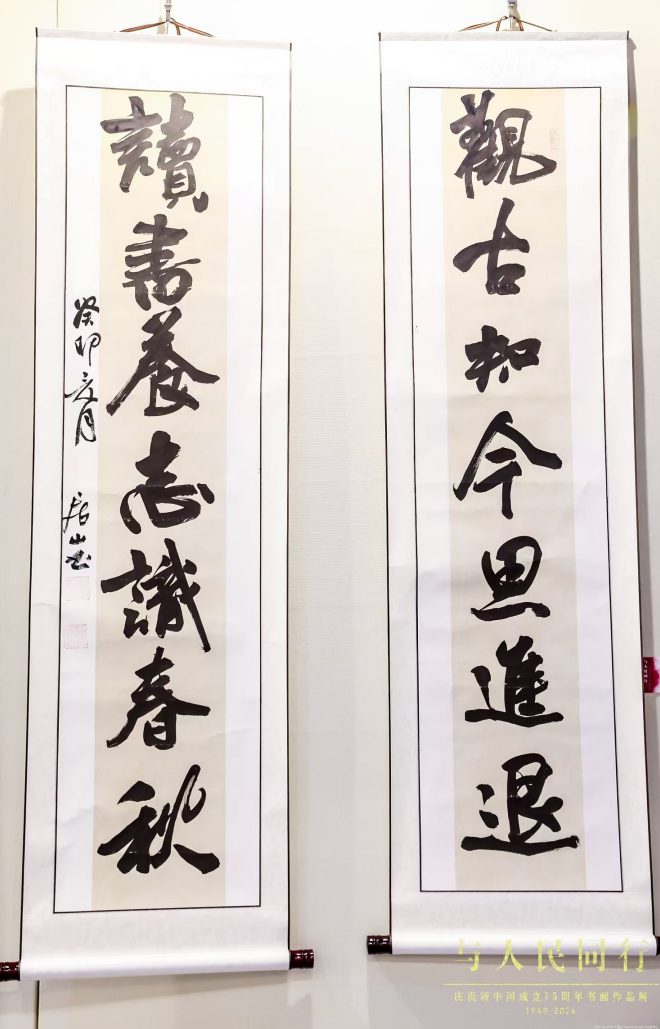 觀古知今思進退
讀書養志識春秋
癸卯六月
与人民同行
庆祝新中国成立75周年书画作品展
1949-2024